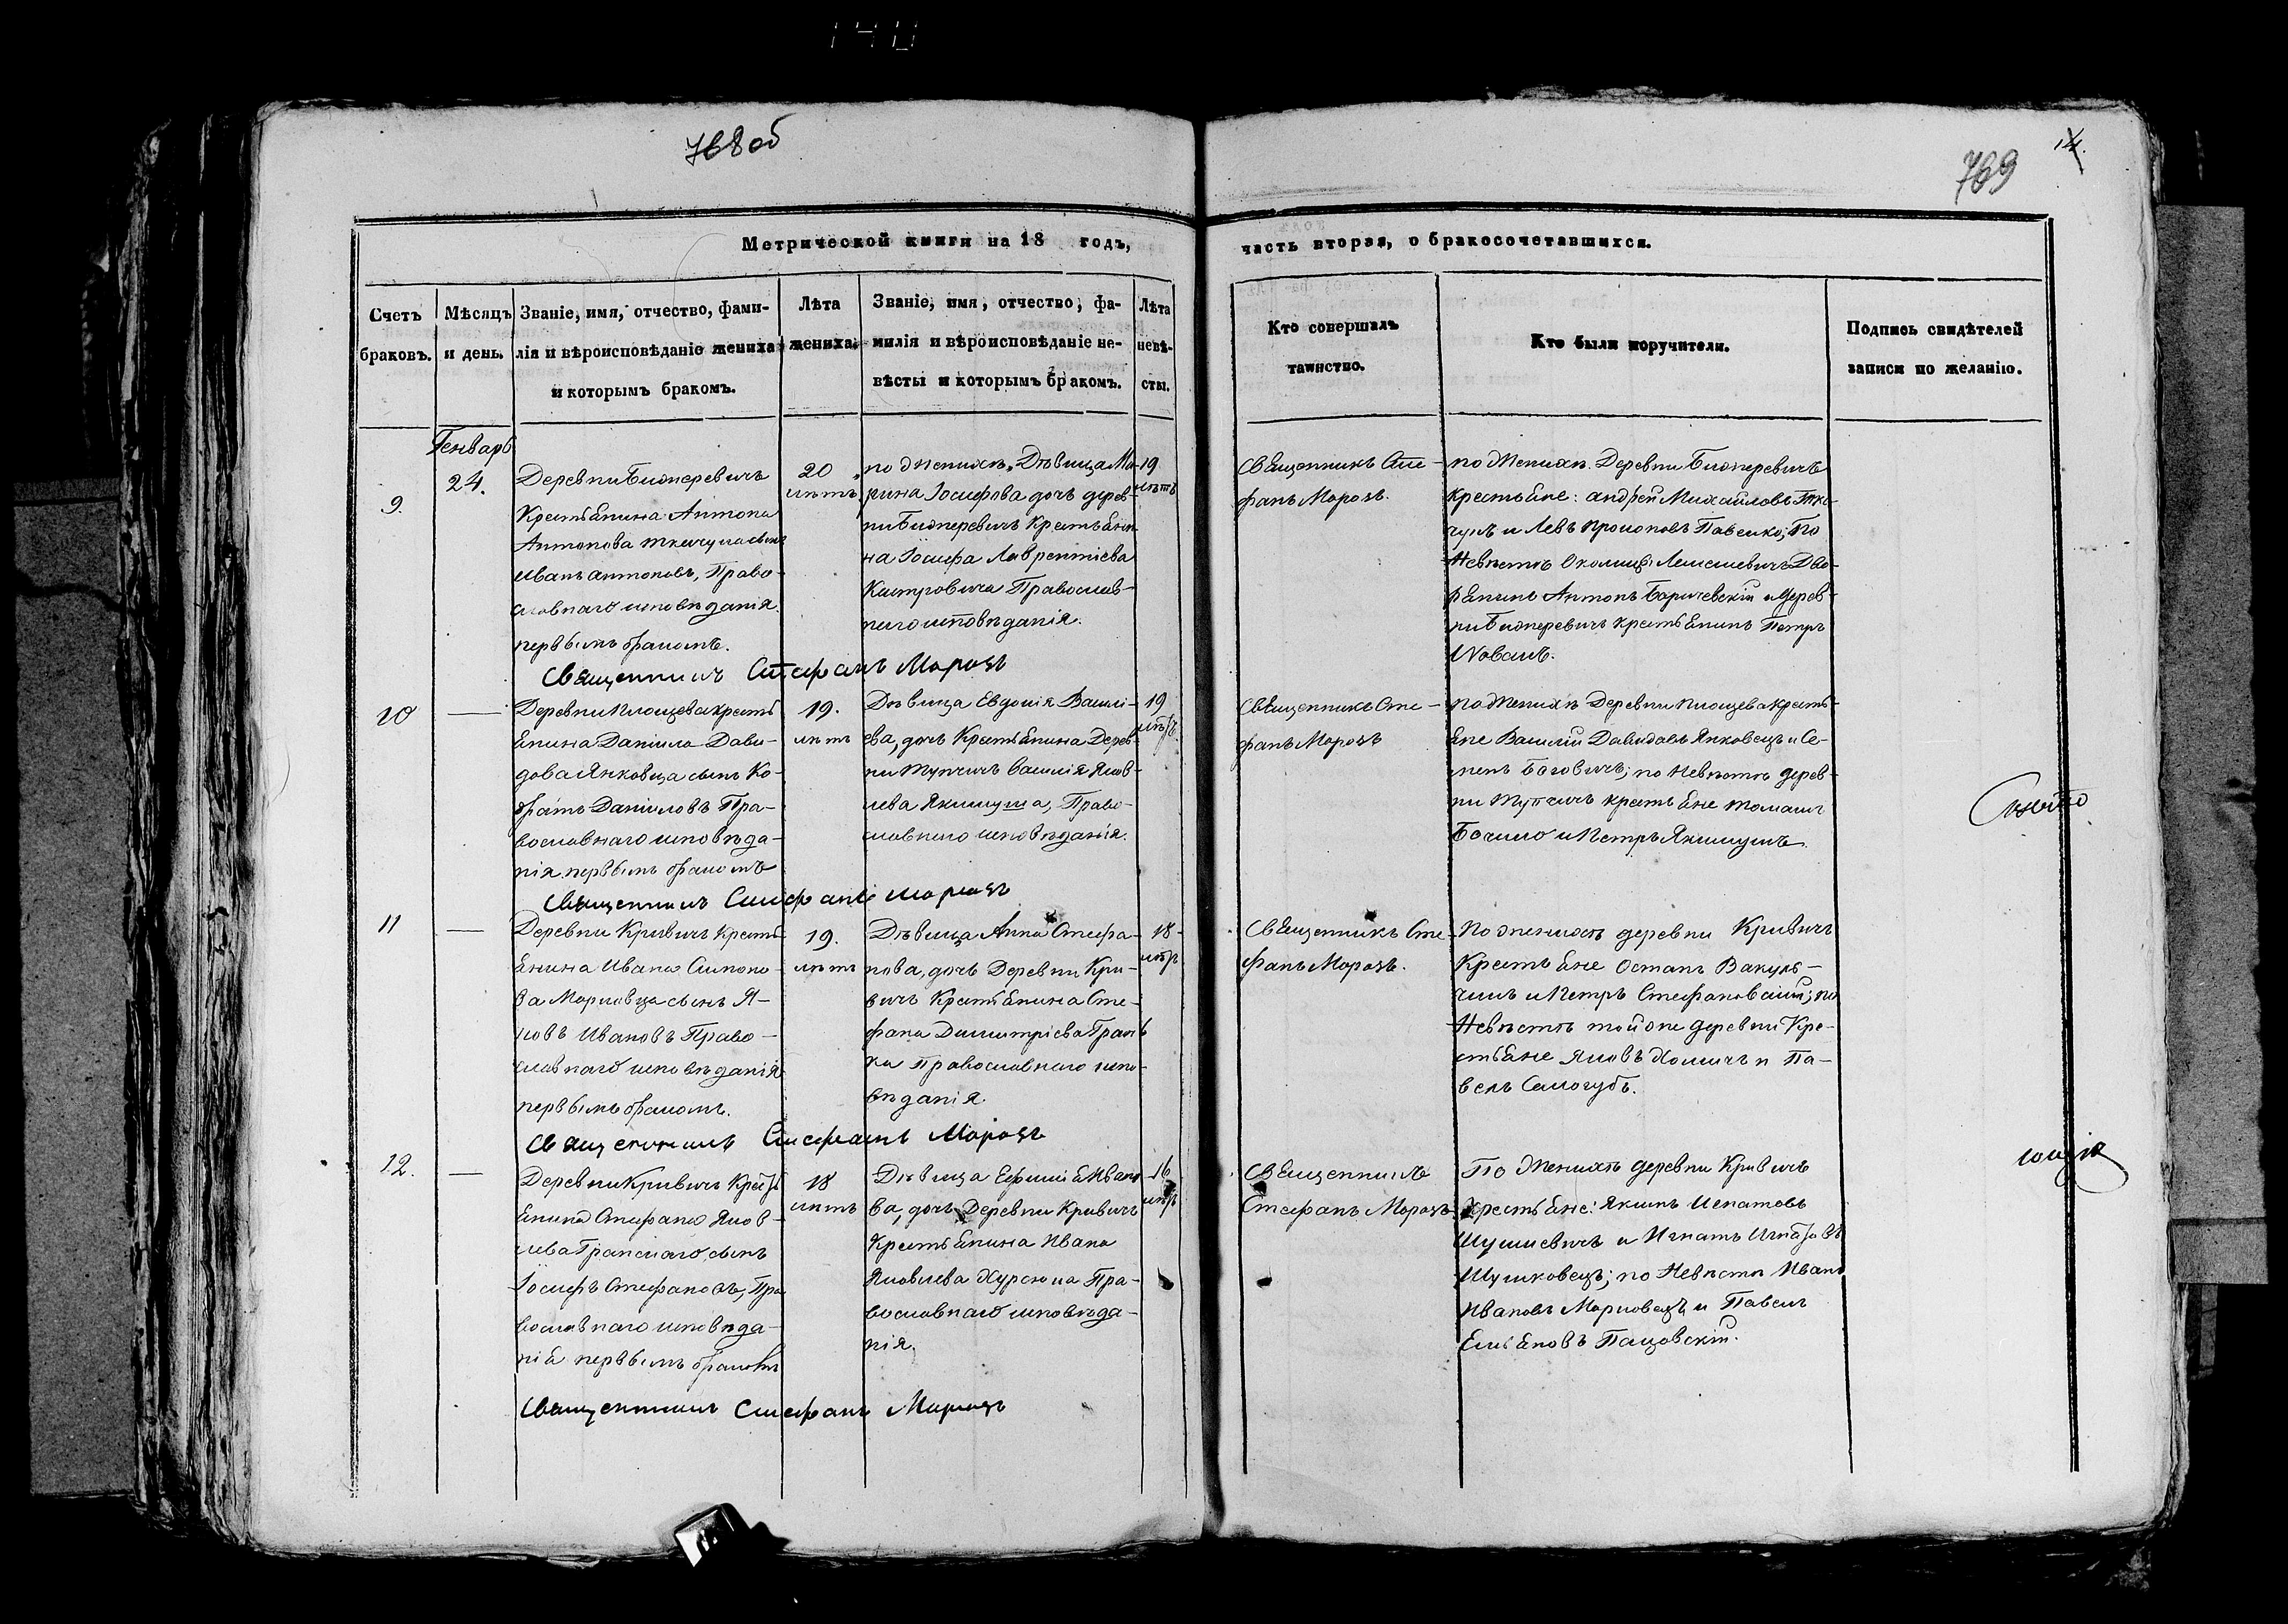 768об
769
14.
Метрической книги на 18 годъ,
часть вторая, о бракосочетавшихся.
Счетъ
браковъ.
Мѣсяцъ
и день.
Званіе, имя, отчество, фами-
лія и вѣроисповѣданіе жениха
и которымъ бракомъ.
Лѣта
жениха.
Званіе, имя, отчество, фа-
милія и вѣроисповѣданіе не-
вѣсты и которымъ бракомъ.
Лѣта
невѣ-
сты.
Кто совершалъ
таинство.
Кто были поручители.
Подпись свидѣтелей
записи по желанію.
Генварь
9.
24.
Деревни Бижеревичъ
Крестьянина Антона
Антонова сынъ
Иванъ Антоновъ, Право-
славнаго исповѣданія
первымъ бракомъ.
20
лѣтъ
Дѣвица Ма-
рина Іосифова дочь дерев-
ни Бижеревичъ Крестьяни-
на Іосифа Лаврентіева
Кастровича Православ-
наго исповѣданія.
19
лѣтъ
Священникъ Сте-
фанъ Морозъ.
по Женихѣ Деревни Бижеревичъ
крестьяне: Андрей Михайловъ Тка-
чукъ и Левъ Прокоповъ Павенко; По
Невѣстѣ Околицы Лемешевичъ Дво-
рянинъ Антонъ Боричевскій и Дерев-
ни Бижеревичъ крестьянинъ Петръ
Новакъ.
Священникъ Стефанъ Морозъ
10
—
Деревни Площева крестья-
янина Даніила Дави-
дова Янковца сынъ Ко-
дратъ Даніиловъ Пра-
вославнаго исповѣда-
нія первымъ бракомъ
19.
лѣтъ
Дѣвица Евдокія Васильи-
ева, дочь Крестьянина Дерев-
ни Тупчичъ Василія Яков-
лева Якимука, Право-
славнаго исповѣданія.
19
лѣтъ
Священникъ Сте-
фанъ Морозъ
по Женихѣ Деревни Площева кресть-
яне Василій Давидовъ Янковецъ и Се-
менъ Боговичъ; по Невѣстѣ дерев-
ни Тупчичъ крестьяне Томашъ
Бочило и Петръ Якимукъ.
Священникъ Стефанъ Морозъ
11
—
Деревни Кривичъ Кресть-
янина Ивана Симоно-
ва Марковца сынъ Я-
ковъ Ивановъ Право-
славнаго исповѣданія
первымъ бракомъ.
19.
лѣтъ
Дѣвица Анна Стефа-
нова, дочь Деревни Кри-
вичъ Крестьянина Сте-
фана Димитріева Гранъ-
ка православнаго испо-
вѣданія.
18
лѣтъ
Священникъ Сте-
фанъ Морозъ.
По женихѣ деревни Кривичъ
Крестьяне Остапъ Вакуль-
чикъ и Петръ Стефановскій; по
Невѣстѣ той же деревни Кре-
стьяне Яковъ Хомичъ и Па-
велъ Самогубъ.
Священникъ Стефанъ Морозъ
12.
—
Деревни Кривичъ Кресть-
янина Стефана Яков-
лева Гранскаго, сынъ
Іосифъ Стефановъ, Пра-
вославнаго исповѣда-
нія первымъ бракомъ
18
лѣтъ
Дѣвица Ефимія Ивано-
ва, дочь Деревни Кривичъ
Крестьянина Ивана
Яковлева Хурсюка Пра-
вославнаго исповѣда-
нія.
16
лѣтъ
Священникъ
Стефанъ Морозъ
По Женихѣ деревни Кривичъ
Крестьяне: Якимъ Игнатовъ
Шушкевичъ и Игнатъ Игнатовъ
Шушковецъ; по Невѣстѣ Иванъ
Ивановъ Марковецъ и Павелъ
Емьяновъ Пацовскій.
Священникъ Стефанъ Морозъ